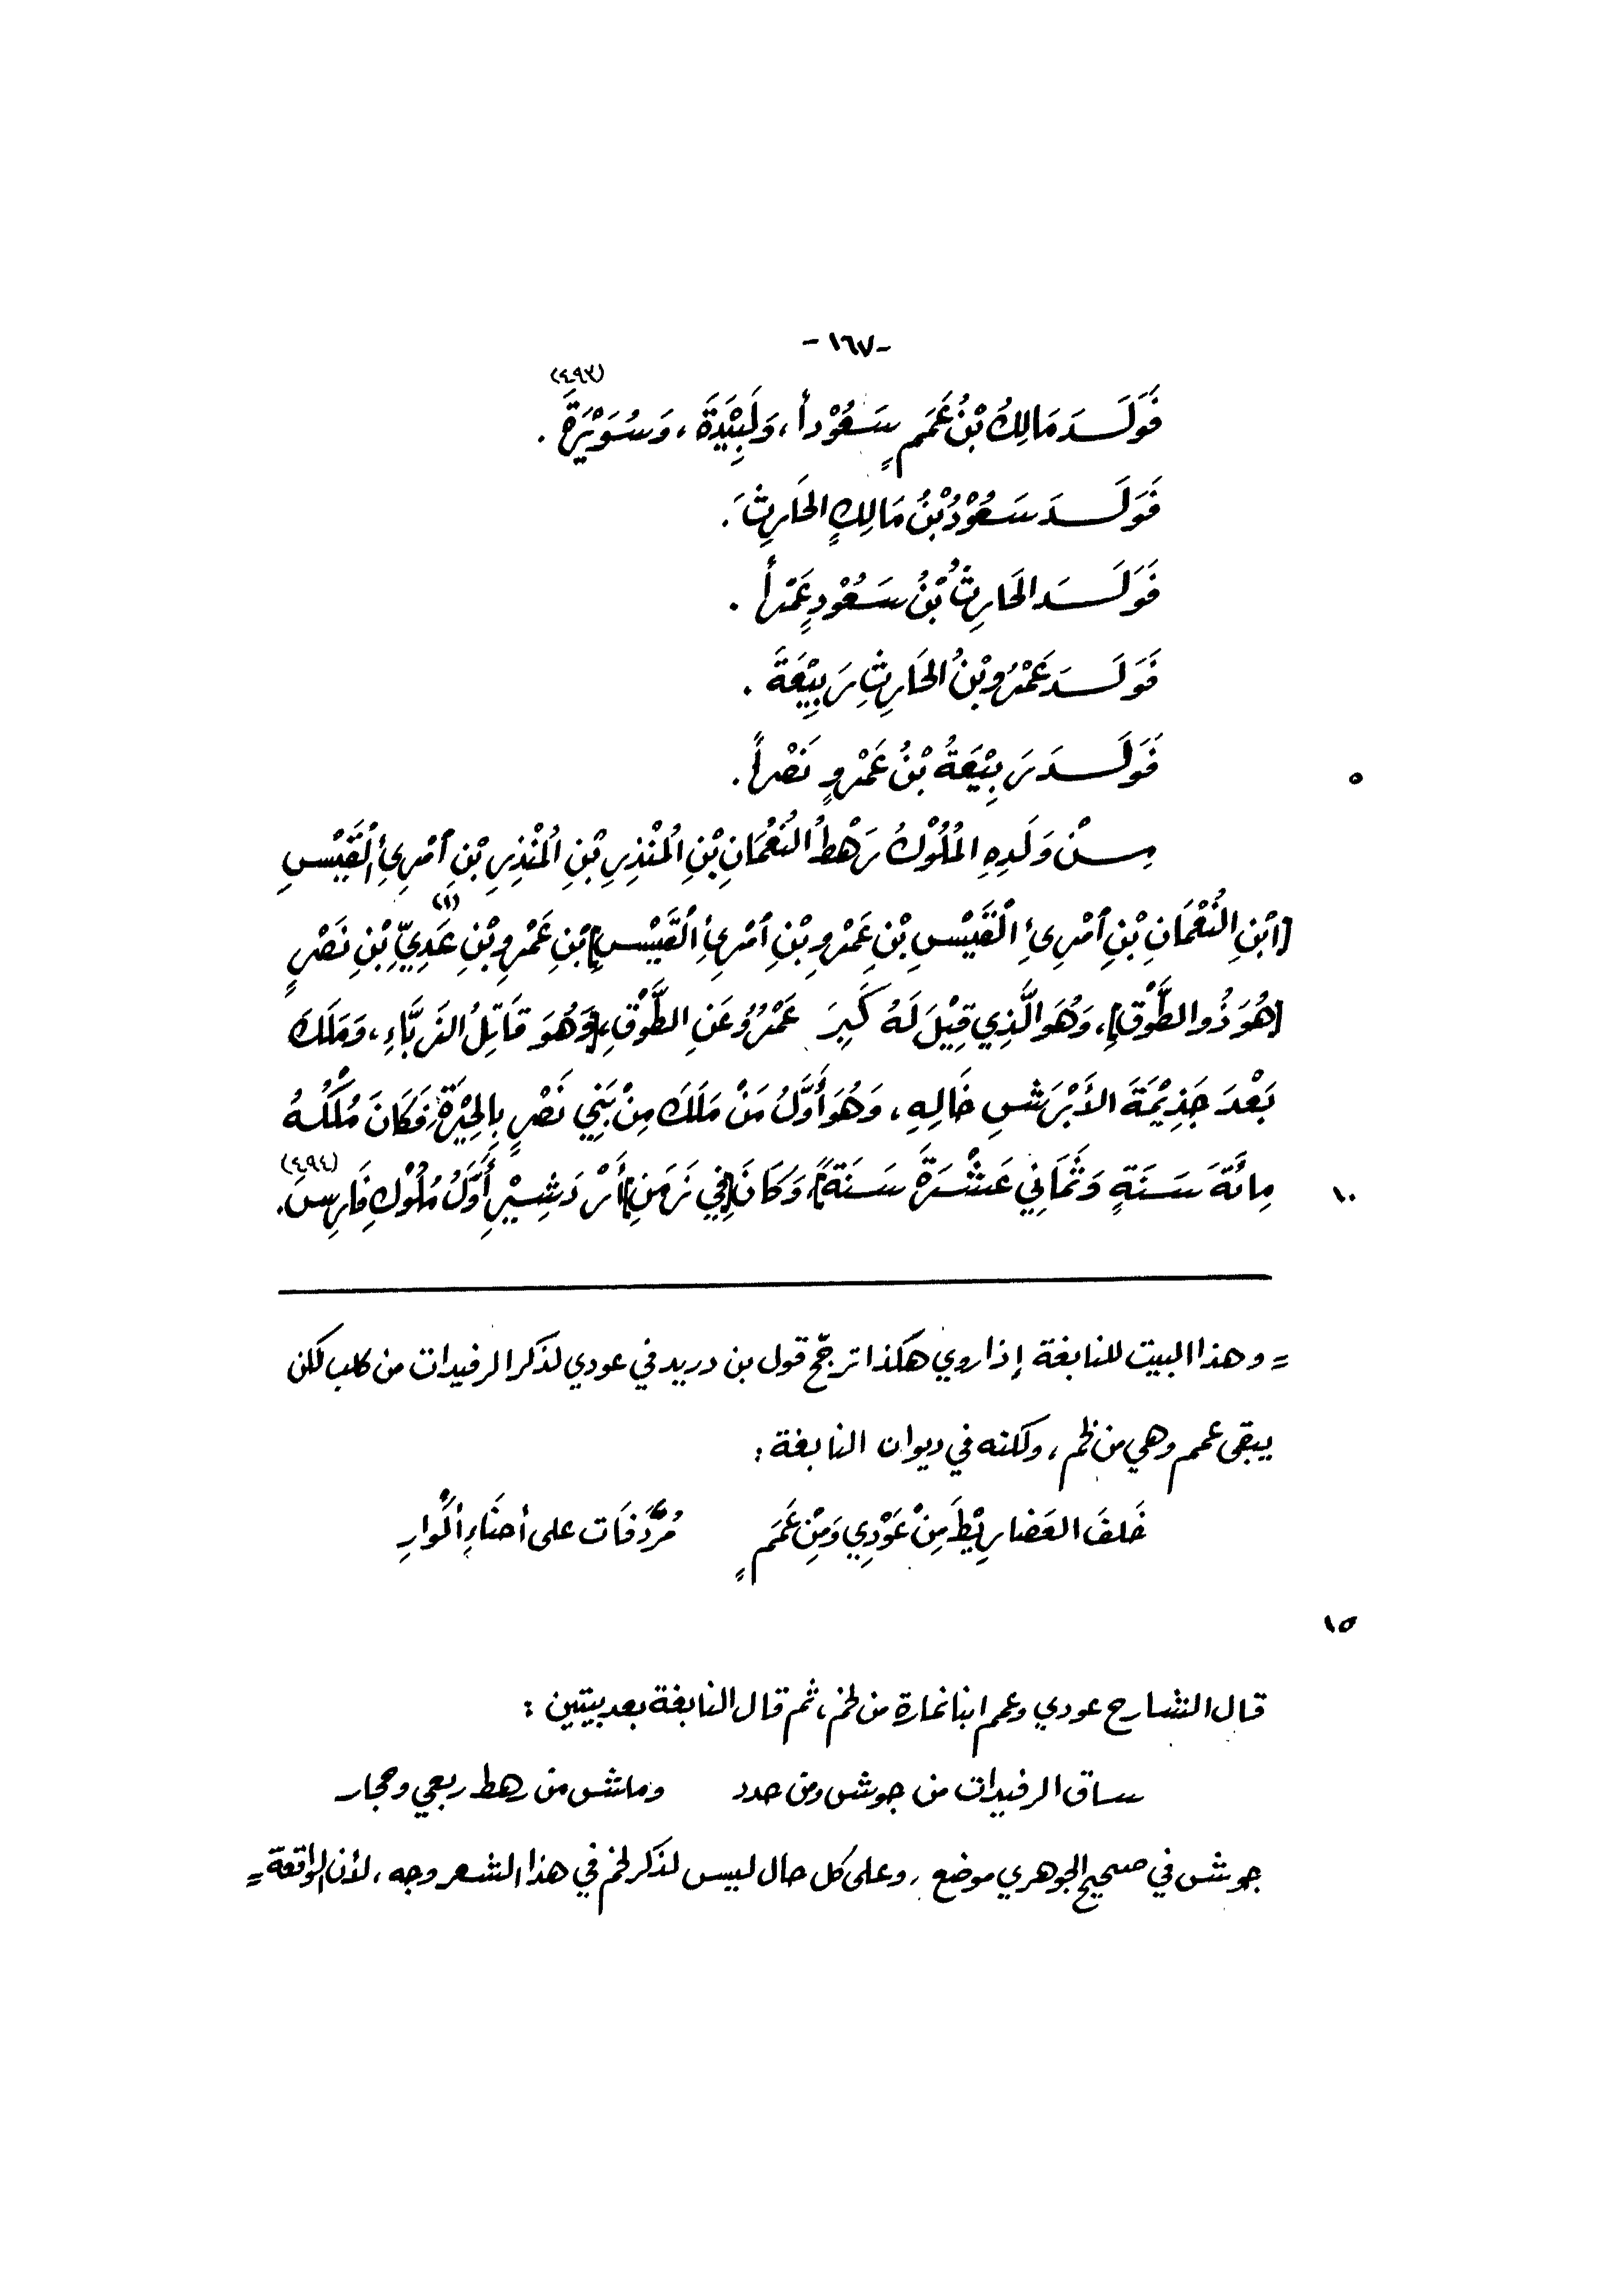 -١٦٧-
(٤٩٣)
فَوَلَدَ مَالِكُ بْنُ عَمَمٍ سَعُوْداً، وَلَبِيْدَةَ، وَسُوَيْرَةَ.
فَوَلَدَ سَعُوْدُ بْنُ مَالِكٍ الحَارِثَ.
فَوَلَدَ الحَارِثُ بْنُ سَعُوْدٍ عَمْراً.
فَوَلَدَ عَمْرُو بْنُ الحَارِثِ رَبِيْعَةَ.
فَوَلَدَ رَبِيْعَةُ بْنُ عَمْرٍو نَصْراً. ٥
مِنْ وَلَدِهِ المُلُوْكُ رَهْطُ النُعْمَانِ بْنِ المُنْذِرِ بْنِ المُنْذِرِ بْنِ امْرِئِ القَيْسِ
[ابْنِ النُعْمَانِ بْنِ امْرِئِ القَيْسِ بْنِ عَمْرِو بْنِ امْرِئِ القَيْسِ] بْنِ عَمْرِو بْنِ عَدِيِّ (١) بْنِ نَصْرٍ
[هُوَ ذُو الطَّوْقِ]، وَهُوَ الَّذِي قِيْلَ لَهُ كَبِرَ عَمْرٌو عَنِ الطَّوْقِ، [وَهُوَ قَاتِلُ الزَبَّاءِ، وَمَلَكَ
بَعْدَ جَذِيْمَةَ الأَبْرَشِ خَالِهِ، وَهُوَ أَوَّلُ مَنْ مَلَكَ مِنْ بَنِي نَصْرٍ بِالحِيْرَةِ، فَكَانَ مُلْكُهُ
مِائَةَ سَنَةٍ وَثَمَانِي عَشْرَةَ سَنَةً]، وَكَانَ [فِي زَمَنِ] أَرْدَشِيْرِ أَوَّلُ مُلُوْكِ فَارِسَ. (٤٩٤) ١٠
= وهذا البيت للنابغة إذا روي هكذا ترجّح قول بن دريد في عودي لذكر الرفيدات من كلب لكن
يبقى عمم وهي من لخم، ولكنه في ديوان النابغة:
خَلفَ العَضارِيْطَ مِنْ عَوْدِي وَمِنْ عَمَمٍ مُرَدَّفَات على أحنَاءِ أكْوارِ
١٥
قال الشارح عودي وعمم ابنا نمارة من لخم، ثم قال النابغة بعد بيتين:
ساق الرفيدات من جوش ومن حدد وماش من رهط ربعي وحجار
جوش في صحيح الجوهري موضع، وعلى كل حال ليس لذكر لخم في هذا الشعر وجه، لأن الواقعة =